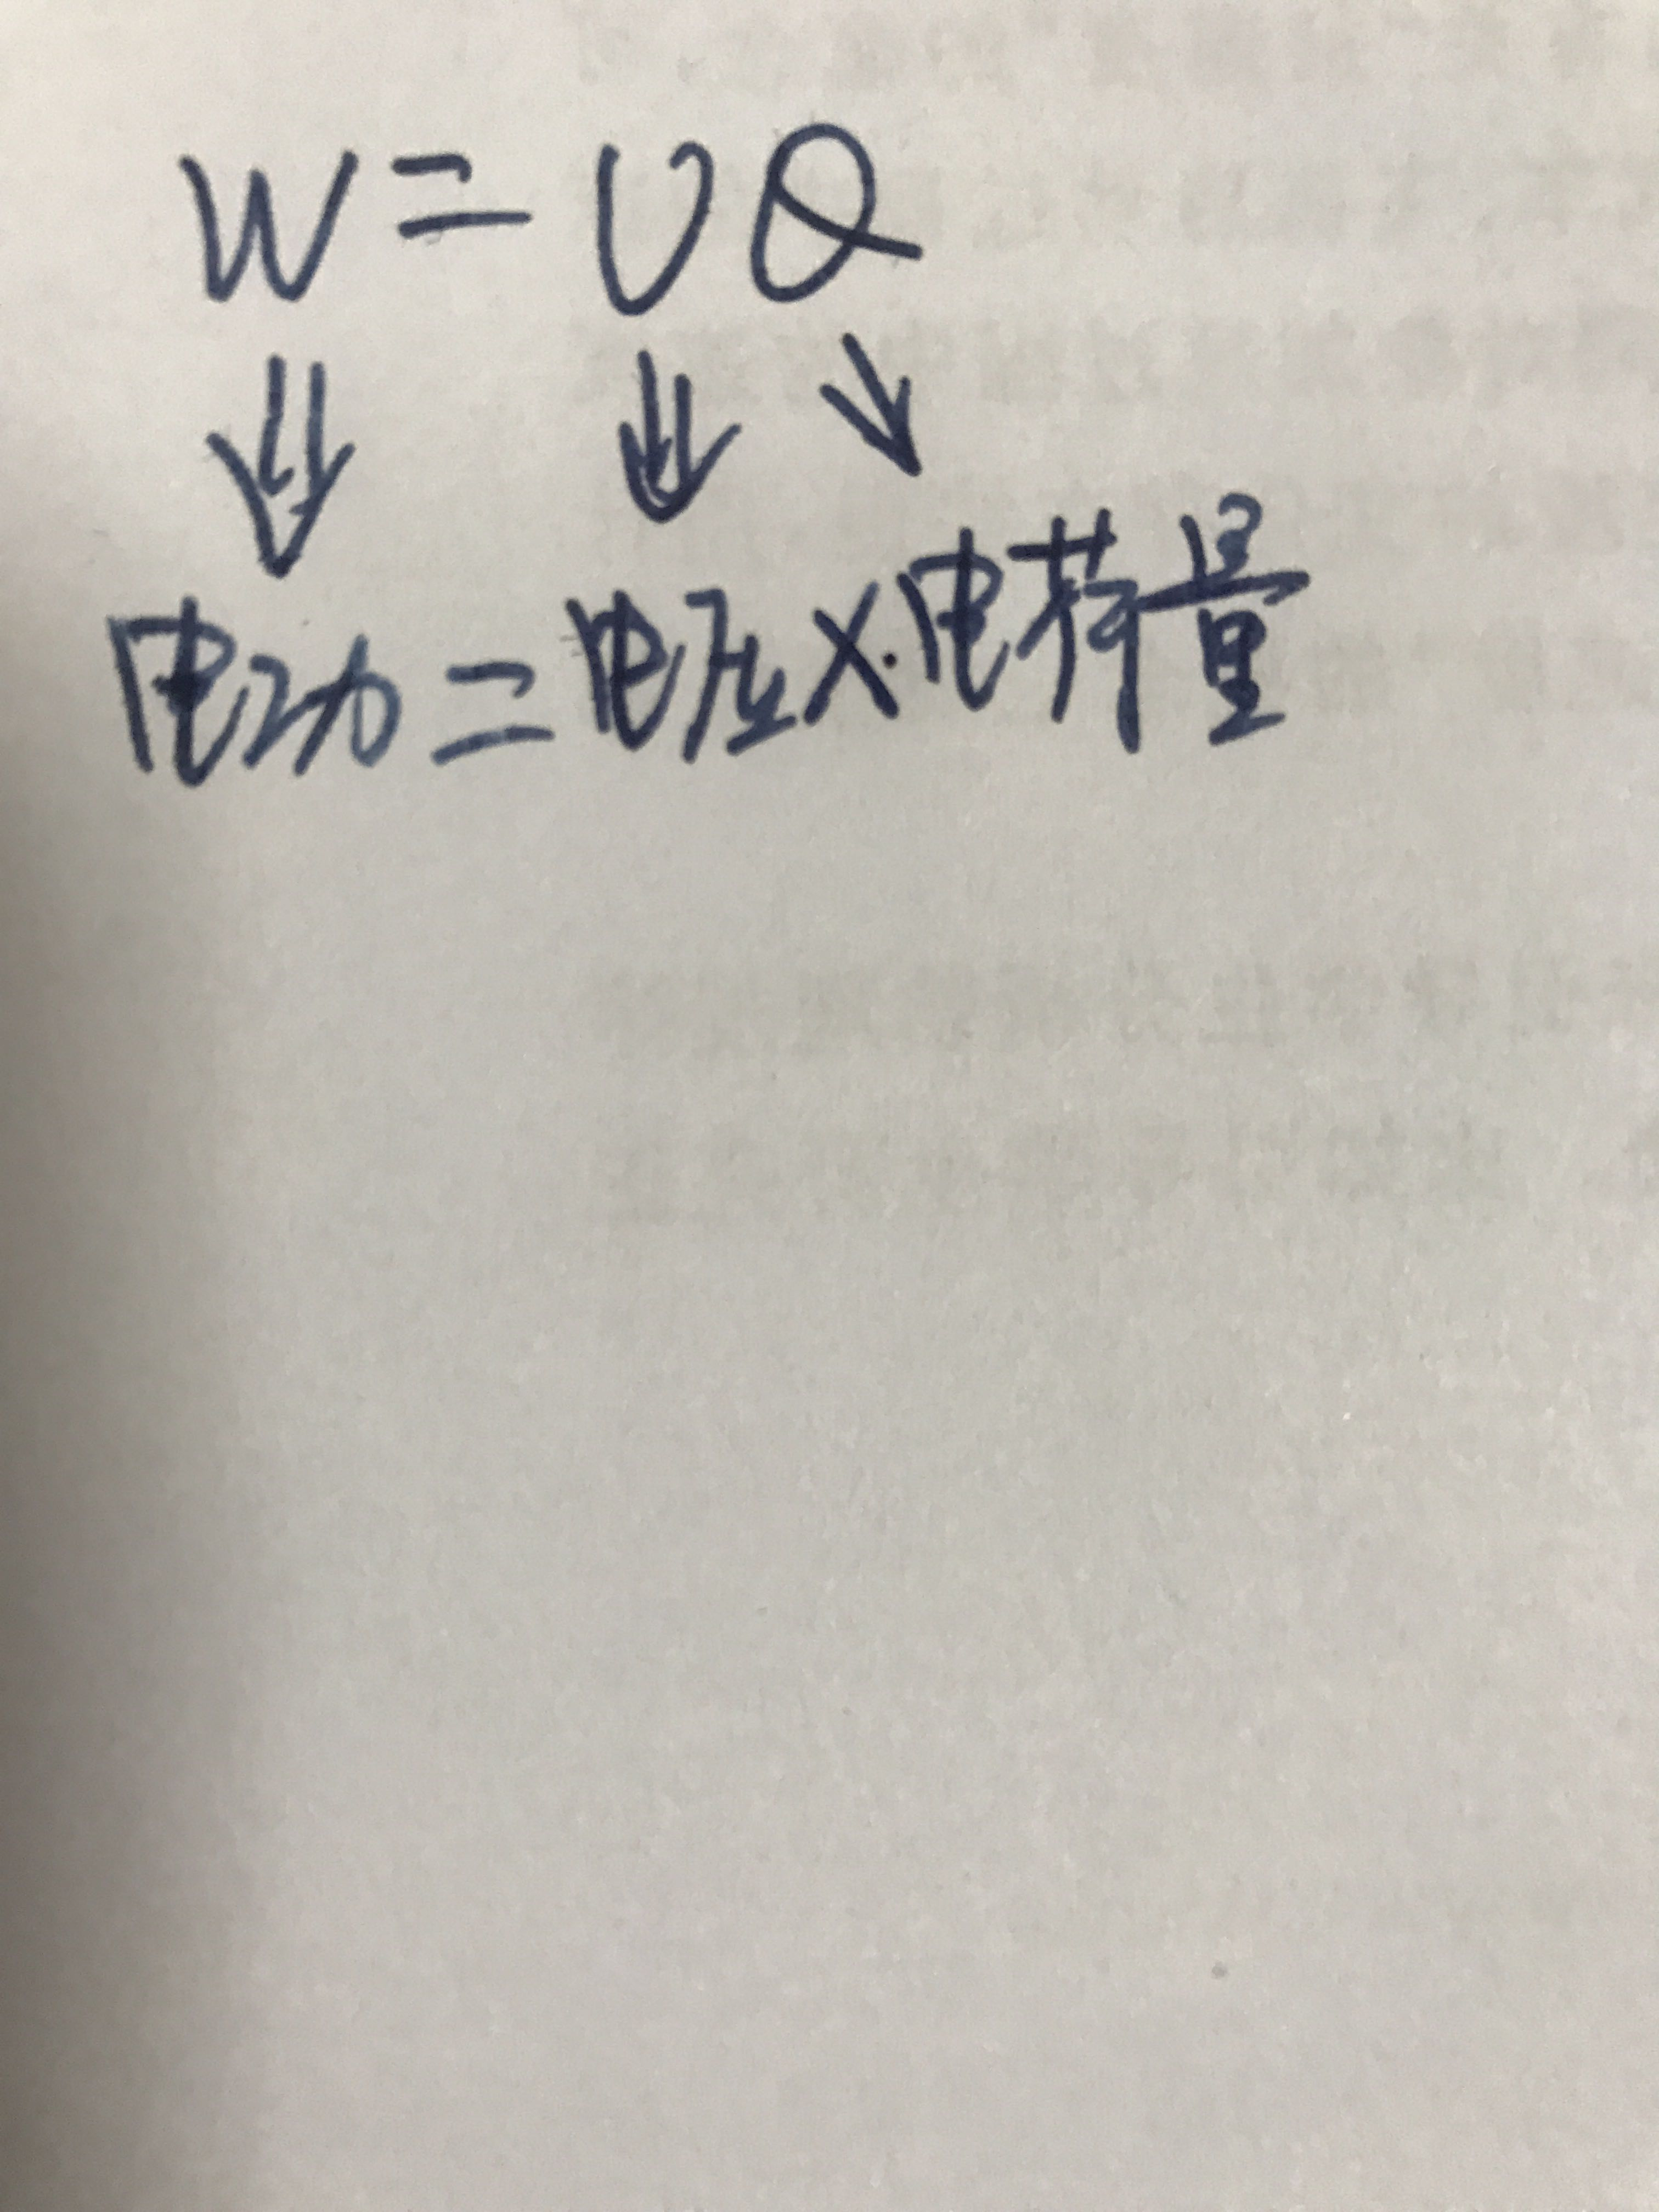 W=UQ
电功=电压×电荷量